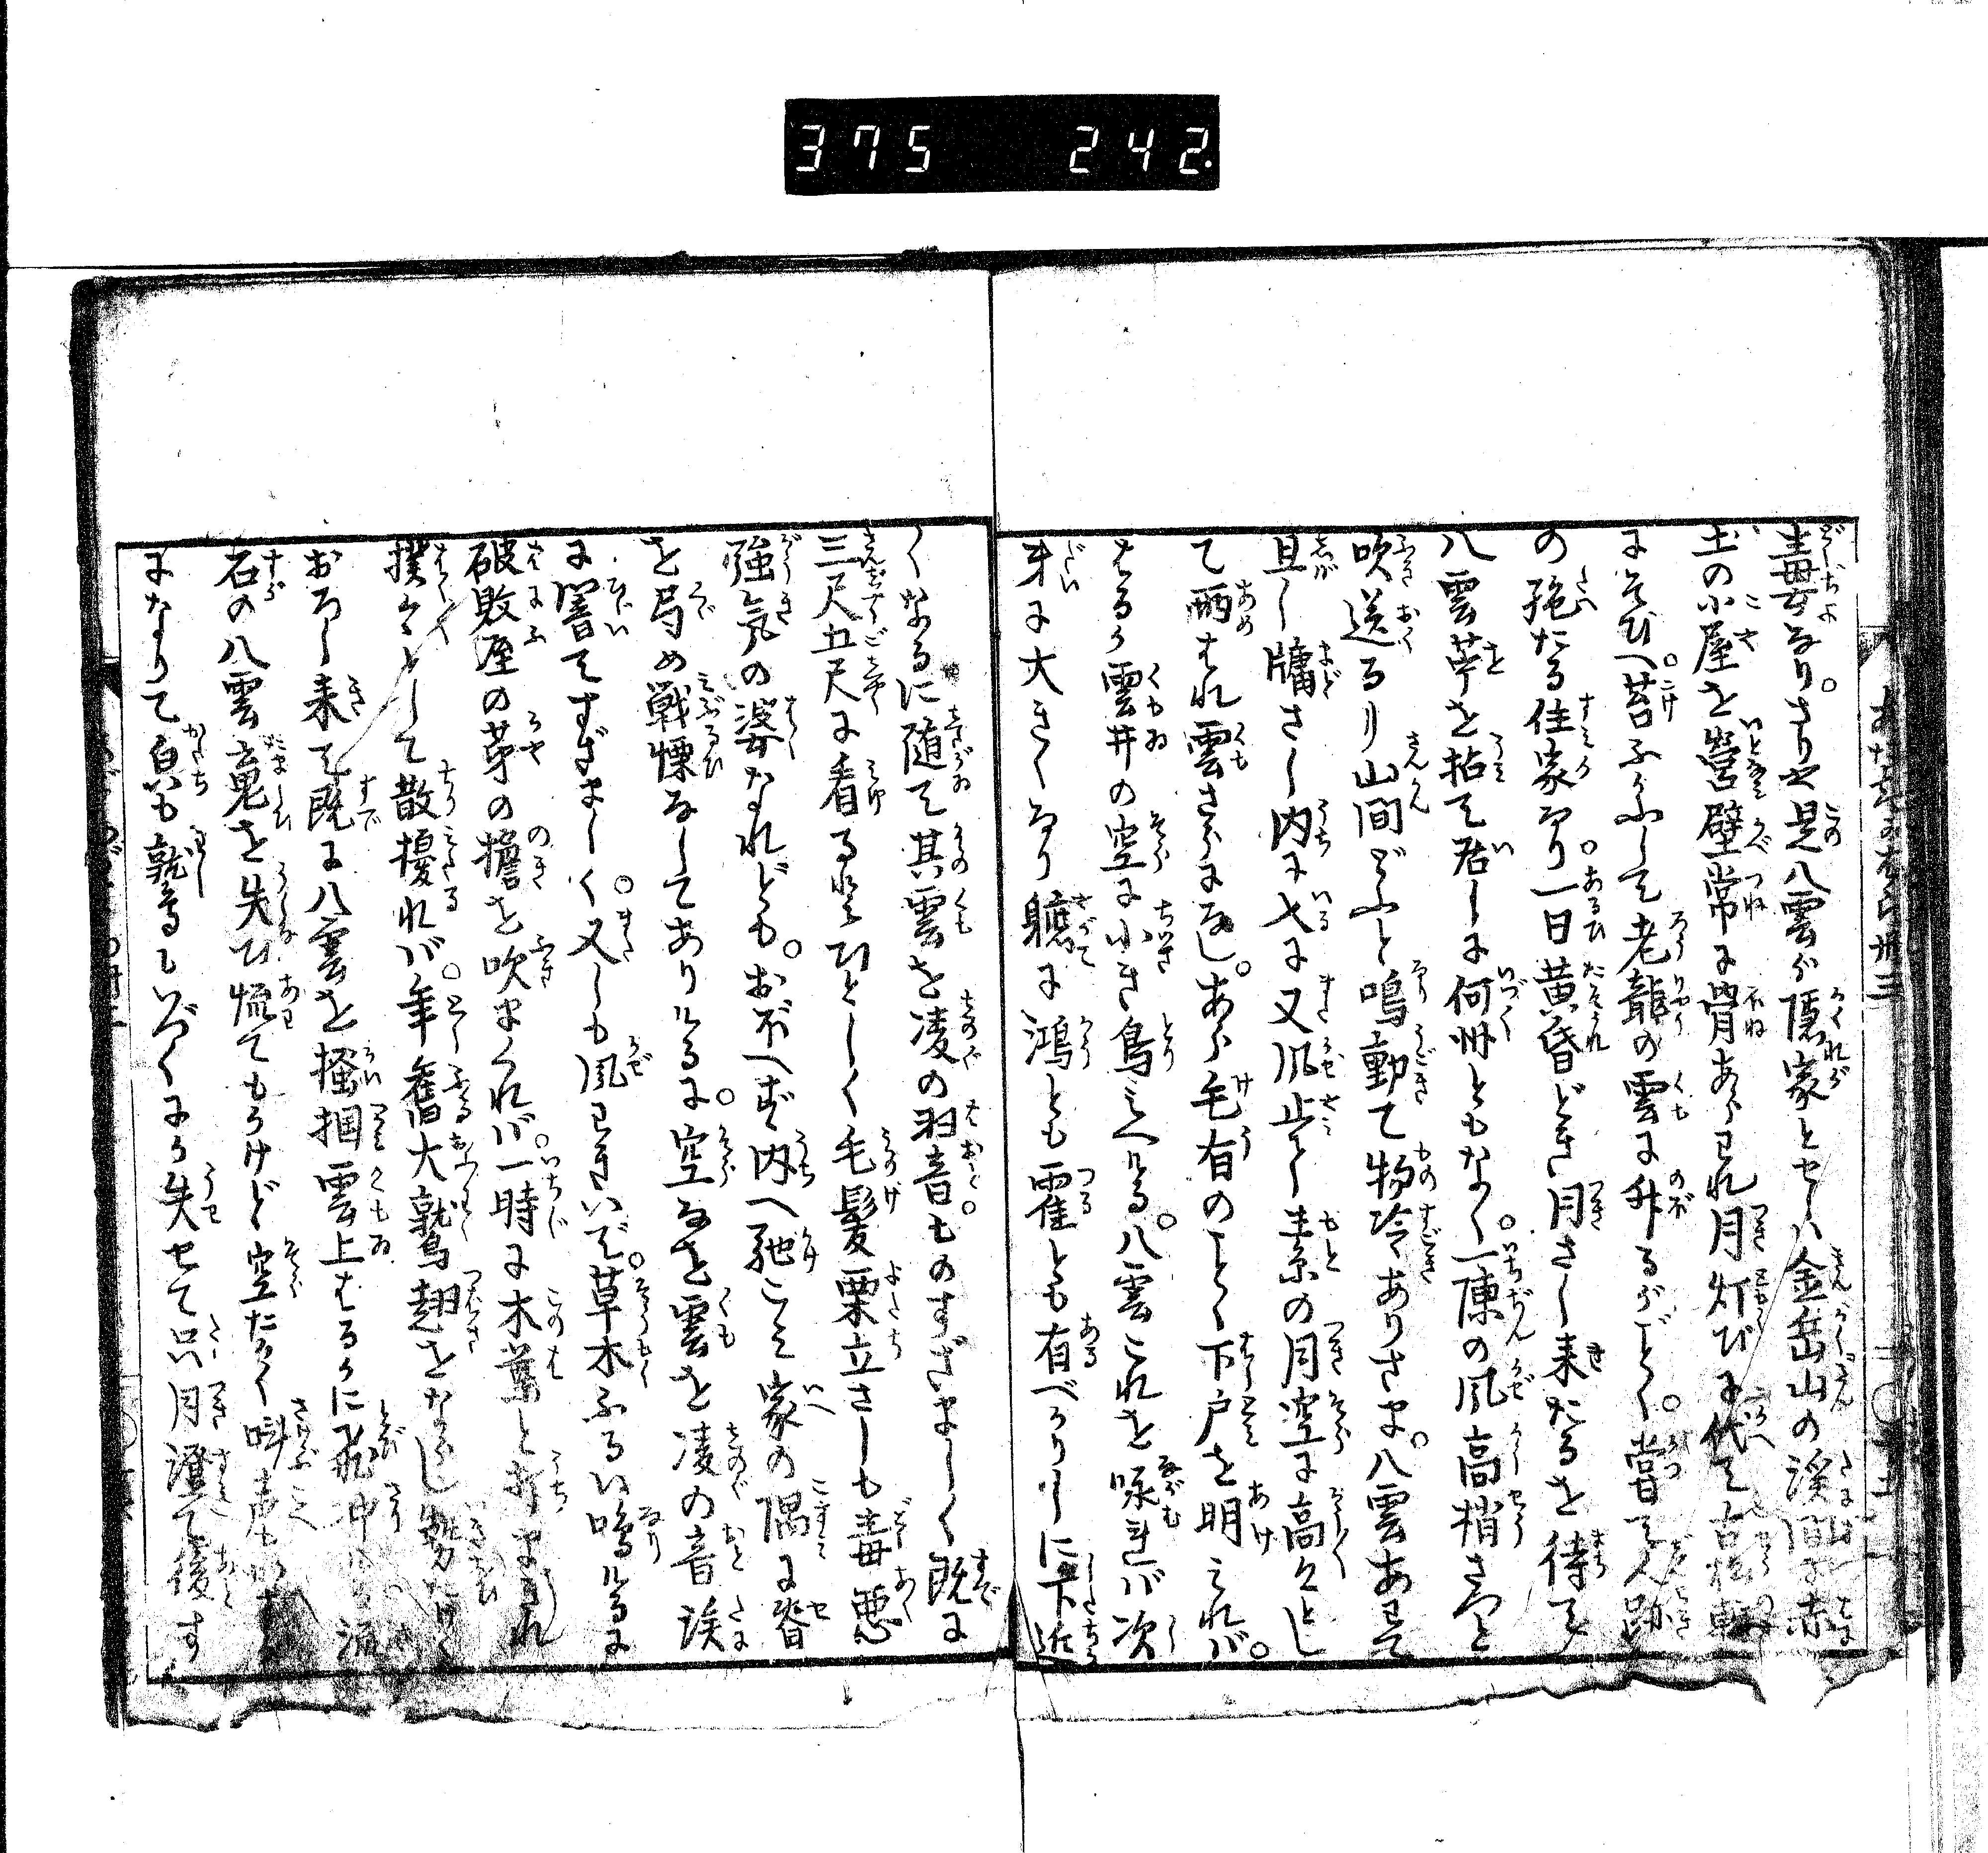 375 242.
毒女なり。さりや是八雲が隠家とせしハ金岳山の渓間に赤
土の小屋を営壁常に骨あらわれ月灯びに代て古松軒
にそびへ。苔ふかふして老龍の雲に升るがごとく。嘗て人跡
の絶たる住家なり。一日黄昏どき月さし来たるを待て
八雲苧を拈て居しに何州ともなく。一陳の風高梢さつと
吹送るり山間どふと鳴動て物冷ありさま。八雲あわて
且し牖さし内に入に又风止て素の月空に高々とし
て雨はれ雲さらになし。あら毛有のことく下戸を明みれバ。
はるか雲井の空に小き鳥みへける。八雲これを咏れバ次
弟に大きくなり軈に鴻とも霍とも有べかりしに下近
くなるに随て其雲を凌の羽音ものすざましく既に
三尺五尺に看る ひとしく毛髪栗立さしも毒悪
強気の婆なれども。おぼへず内へ馳こミ家の隅に脊
を局め戦慄なしてありけるに。空なを雲を凌の音誒
に署てすざましく。又しも風わきいで。草木ふるい鳴けるに
破敗厓の茅の擔を吹まくれバ。一時に木葉と打
撲々として散擾れバ。年旧大鷲翅をならし勢たけく
おろし来て既に八雲を掻掴雲上はるかに飛冲
石の八雲魂を失ひ慌てもがけど空たかく叫声
になりて貌も鷲もいづくにか失せて只月澄て後す